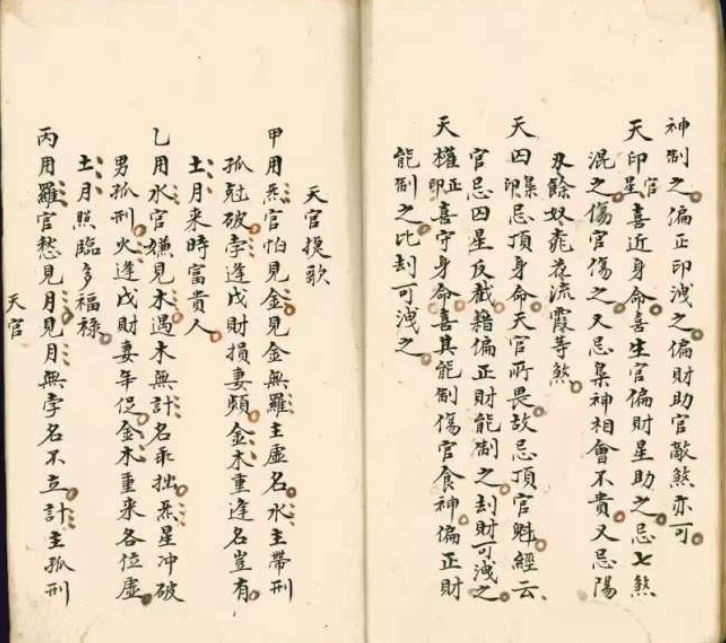 神制之偏正印洩之偏財助官敵煞亦可
天印官星喜近身命喜生官偏財星助之忌七煞
混之傷官傷之又忌梟神相會不貴又忌陽
刃餘奴桃花流霞等煞
天囚梟印忌頂身命天官所畏故忌頂官魁經云
官忌囚星反截籍偏正財能制之刦財可洩之
天權正印喜守身命喜其能制傷官食神偏正財
能制之比刦可洩之
天官摸歌
甲用炁官怕見金見金無羅主虛名水主帶刑
孤尅破孛逢戊財損妻頻金木重逢名豈有
土月来時富貴人
乙用水官嫌見木遇木無計名乖拙炁星冲破
男孤刑火逢戊財妻年促金木重来各位虛
土月照臨多福祿
丙用羅官愁見月見月無孛名不立計主孤刑
天官